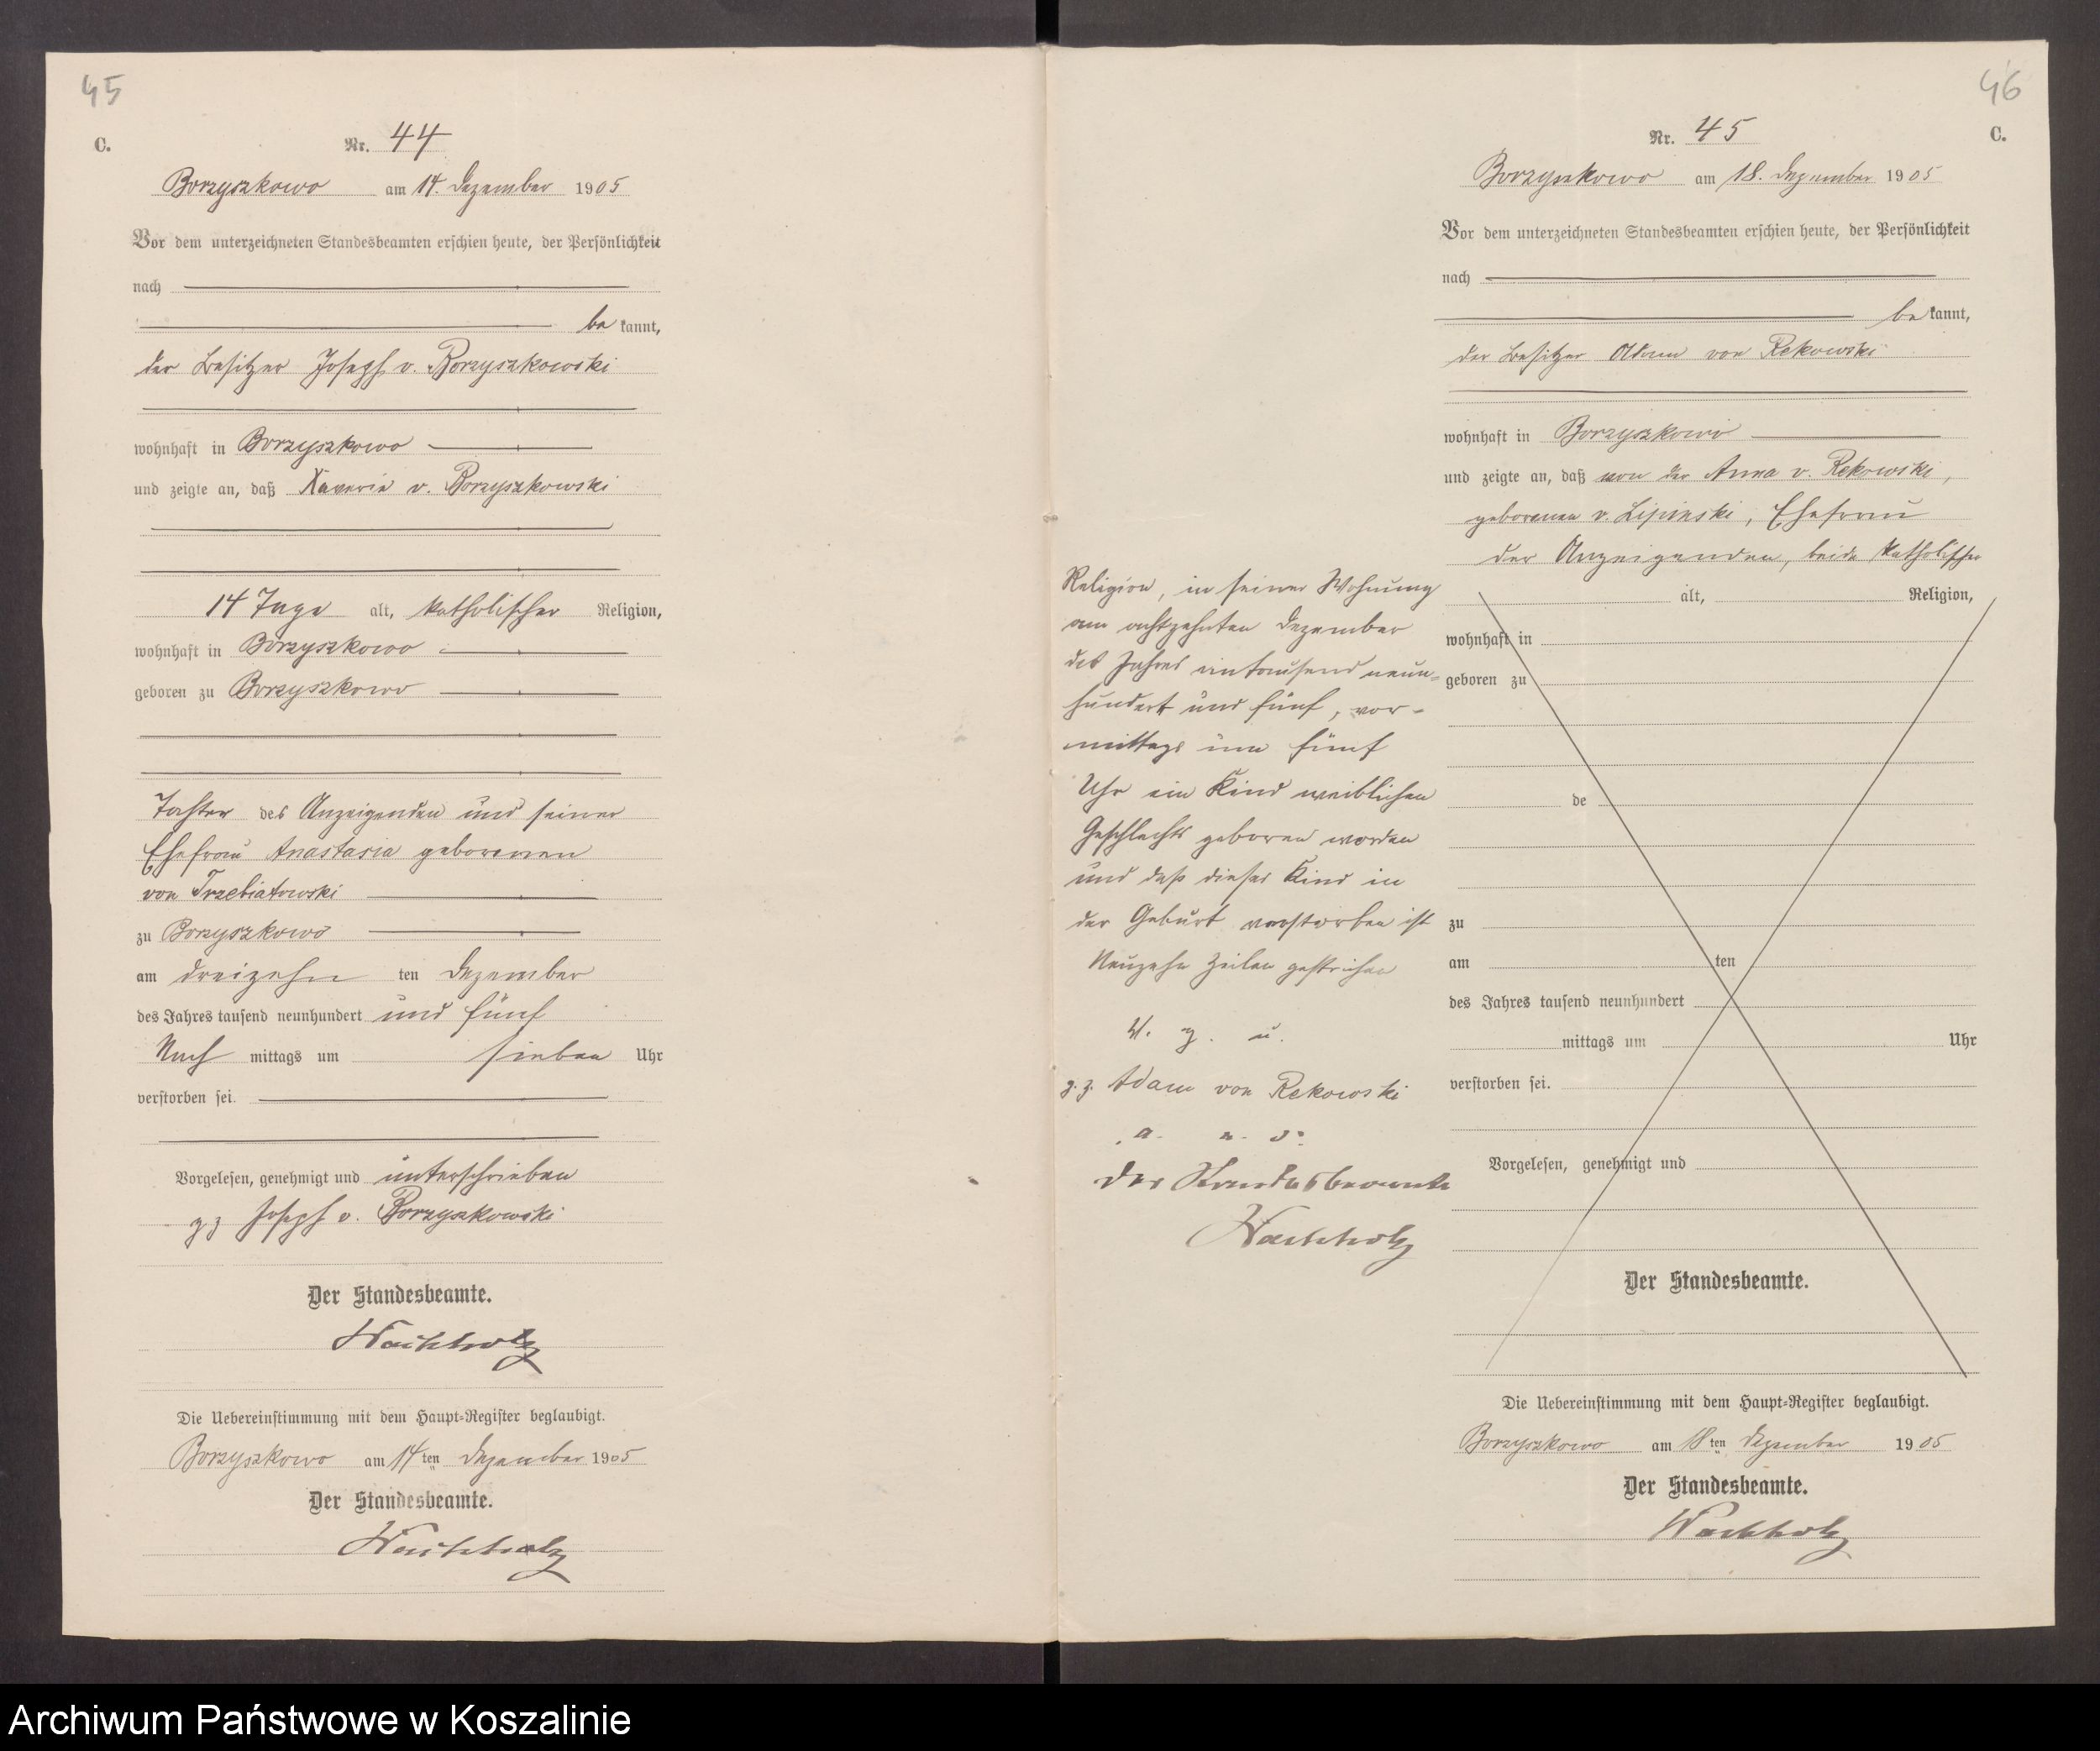 45
C.
Nr. 44
Borzyszkowo am 14. Dezember 1905
Vor dem unterzeichneten Standesbeamten erschien heute, der Persönlichkeit
nach
be kannt,
der Besitzer Joseph v. Borzyszkowski
wohnhaft in Borzyszkowo
und zeigte an, daß Xaveria v. Borzyszkowski
14 Tage alt, katholischer Religion,
wohnhaft in Borzyszkowo
geboren zu Borzyszkowo
Tochter des Anzeigenden und seiner
Ehefrau Anastasia geborenen
von Trzebiatowski
zu Borzyszkowo
am dreizehn ten Dezember
des Jahres tausend neunhundert und fünf
Nach mittags um sieben Uhr
verstorben sei.
Vorgelesen, genehmigt und unterschrieben
gz Joseph v. Borzyszkowski
Der Standesbeamte.
Wachholz
Die Uebereinstimmung mit dem Haupt-Register beglaubigt.
Borzyszkowo am 14 ten Dezember 1905
Der Standesbeamte.
Wachholz
46
C.
Nr. 45
Borzyszkowo am 18. Dezember 1905
Vor dem unterzeichneten Standesbeamten erschien heute, der Persönlichkeit
nach
be kannt,
der Besitzer Adam von Rekowski
wohnhaft in Borzyszkowo
und zeigte an, daß von der Anna v. Rekowski,
geborenen v. Lipinski, Ehefrau
des Anzeigenden, beide katholischer
Religion, in seiner Wohnung
am achtzehnten Dezember
des Jahres eintausend neun-
hundert und fünf, vor-
mittags um fünf
Uhr ein Kind weiblichen
Geschlechts geboren worden
und daß dieses Kind in
der Geburt verstorben ist
Neunzehn Zeilen gestrichen
V. g. u.
g. z. Adam von Rekowski
Der Standesbeamte
Wachholz
alt, Religion,
wohnhaft in
geboren zu
de
zu
am ten
des Jahres tausend neunhundert
mittags um Uhr
verstorben sei.
Vorgelesen, genehmigt und
Der Standesbeamte.
Die Uebereinstimmung mit dem Haupt-Register beglaubigt.
Borzyszkowo am 18 ten Dezember 1905
Der Standesbeamte.
Wachholz
Archiwum Państwowe w Koszalinie